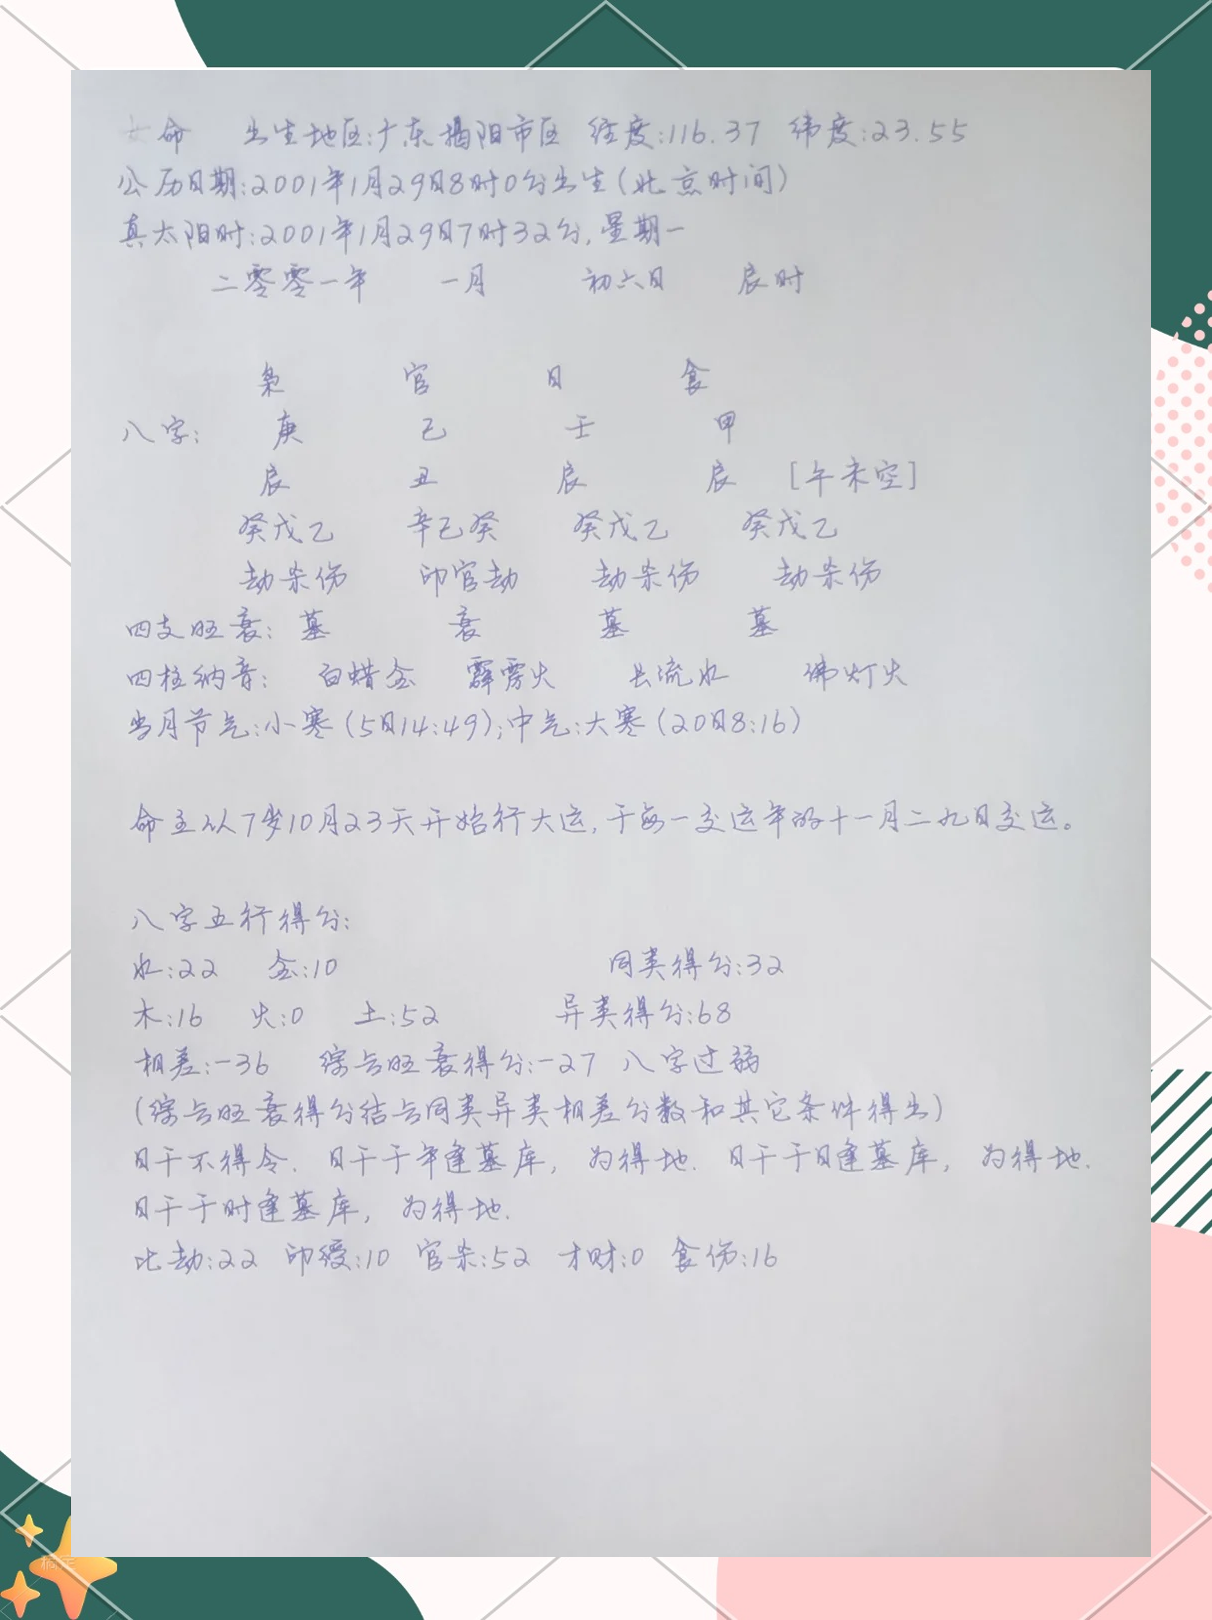 女命 出生地区:广东揭阳市区 经度:116.37 纬度:23.55
公历日期:2001年1月29日8时0分出生(北京时间)
真太阳时:2001年1月29日7时32分,星期一
二零零一年 一月 初六日 辰时
枭 官 日 食
八字: 庚 己 壬 甲
辰 丑 辰 辰 [午未空]
癸戊乙 辛己癸 癸戊乙 癸戊乙
劫杀伤 印官劫 劫杀伤 劫杀伤
四支旺衰: 墓 衰 墓 墓
四柱纳音: 白蜡金 霹雳火 长流水 佛灯火
当月节气:小寒(5日14:49);中气:大寒(20日8:16)
命主从7岁10月23天开始行大运,于每一交运年的十一月二九日交运。
八字五行得分:
水:22 金:10 同类得分:32
木:16 火:0 土:52 异类得分:68
相差:-36 综合旺衰得分:-27 八字过弱
(综合旺衰得分结合同类异类相差分数和其它条件得出)
日干不得令. 日干于年逢墓库, 为得地. 日干于日逢墓库, 为得地.
日干于时逢墓库, 为得地.
比劫:22 印绶:10 官杀:52 才财:0 食伤:16